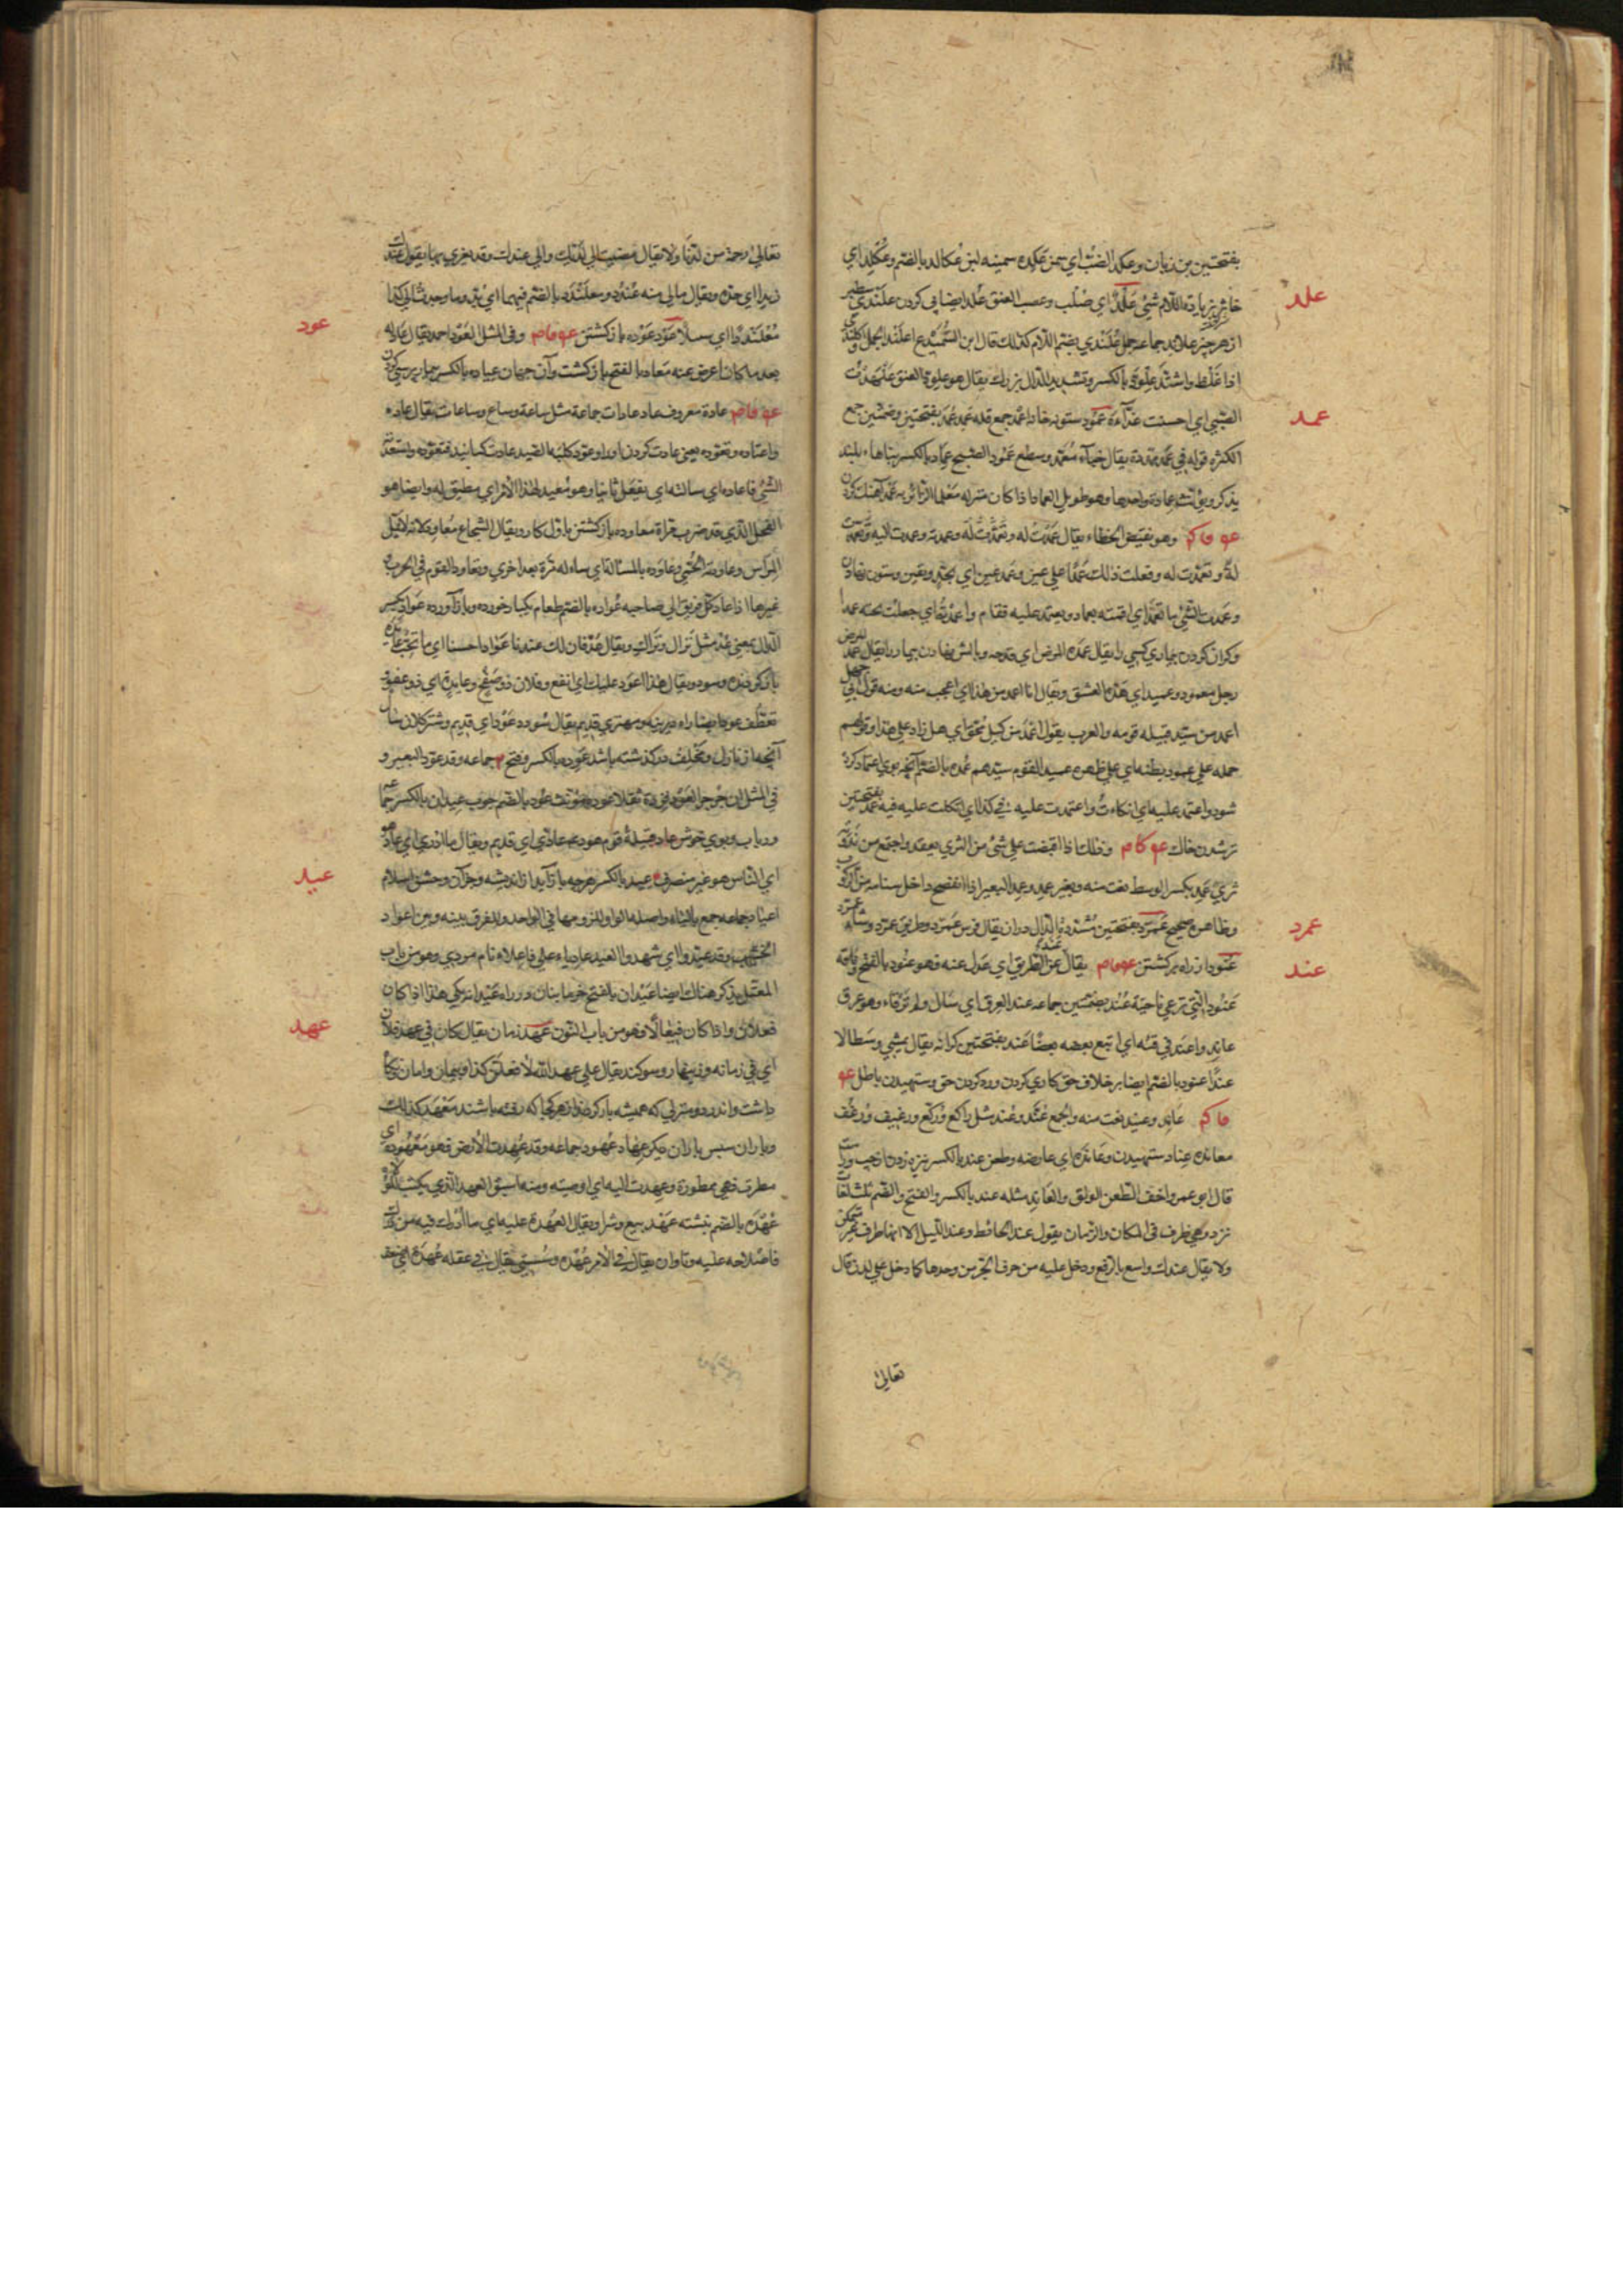 بفتحتین بن زبان وعکد الضب ای سمن عکده سمینه لبن عکالد بالضم وعکلد ای
خاثر بزیادة اللام شیٔ علد ای صلب وعصب العنق علد ایضا پی کردن علندی سطبر
علد
از هر چیز علاند جماعه جمل علندی بضم اللام کذلک قال ابن السمیدع اعلند الجمل
اذا غلظ واشتد علود بالکسر وتشدید الدال بزرک یقال هو علود العنق علهدت
الصبی ای احسنت غذاءه عمود ستون خانه اعمده جمع قله عمد عمد بفتحتین وضمتین جمع
عمد
الکثره قوله فی عمد ممددة یقال خباء معمد وسطع عمود الصبح عماد بالکسر بناهاء بلند
یذکر ویؤنث عماده واحدها وهو طویل العماد اذا کان منزله معلما لزائریه عمد آهنک کردن
عو فا کم وهو نقیض الخطاء یقال عمدت له وتعمدت له وعمدته وعمدت الیه
له وتعمدت له وفعلت ذلک عمدا علی عین وعمد عین ای بجد ویقین وستون نهادن
وعمدت الشیٔ ای اقمته بعماد یعتمد علیه فقام واعمدته ای جعلت تحته عمدا
وکران کردن بیماری کسی را یقال عمده المرض ای فدحه
رجل معمود وعمید ای هده العشق ویقال انا اعمد من هذا ای اعجب منه ومنه قول ابی جهل
اعمد من سید قتله قومه والعرب یقول اعمد من کیل محق ای هل زاد علی هذا وقولهم
حمله علی عمود بطنه ای علی ظهره عمید القوم سیدهم عمده بالضم آنچه بروی اعتماد کرده
شود واعتمد علیه ای اتکاءت واعتمدت علیه فی کذا ای اتکلت علیه فیه عمد بفتحتین
تر شدن خاک عو کا م وذلک اذا قبضت علی شیٔ من الثری تعقد واجتمع من ندوته
ثری عمد بکسر الوسط نعت منه وبعیر عمد وعمد البعیر اذا انفضح داخل سنامه من الرکوب
وظاهره صحیح عمرد بفتحتین مشددة الدال دراز یقال فرس عمرد وطریق عمرد
عمرد
عنود از راه برکشتن عو فا م یقال عند عن الطریق ای عدل عنه فهو عنود بالفتح وناقة
عند
عنود التی ترعی ناحیة عند بضمتین جماعه عند العرق ای سال ولم ترقاء وهو عرق
عاند واعند فی قیئه ای اتبع بعضه بعضا عند بفتحتین کرانه یقال یمشی وسطا لا
عندا عنود بالضم ایضا بر خلاف حق کاری کردن ورد کردن حق وستهیدن باطل عو
فا کم عاند وعنید نعت منه والجمع عند وعند مثل راکع ورکع ورغیف ورغف
معانده عناد ستهیدن وعانده ای عارضه وطعن عند بالکسر نیزه زدن از چپ وراست
قال ابو عمرو اخف الطعن الولق والعاند مثله عند بالکسر والفتح والضم ثلث لغات
نزد وهی ظرف فی المکان والزمان یقول عند الحائط وعند اللیل الا انها ظرف غیر متمکن
ولا یقال عندک واسع بالرفع ودخل علیه من حرف الجر من وحدها کما دخل علی لدن قال
تعالی
تعالی رحمة من لدنا ولا یقال مضیت الی لدنک والی عندک وقد یغری بها یقول عندک
زیدا ای خذه ویقال مالی منه عندد ومعلندد بالضم فیهما ای بد وما وجدت الی کذا
معلنددا ای سبیلا عود عوده باز کشتن عو فا م وفی المثل العود احمد یقال عاد له
عود
بعد ما کان اعرض عنه معاد بالفتح باز کشت وآن جهان عیاده بالکسر بیمار پرسی کردن
عو فا م عادة معروف عاد عادات جماعة مثل ساعة وساع وساعات یقال عاده
واعتاده وتعوده یعنی عادت کرد او را وعود کلبه الصید عادت کنانید فتعوده واستعدته
الشیٔ فاعاده ای سالته ان یفعل ثانیا وهو معید لهذا الامر ای مطیق له وایضا هو
الفحل الذی قد ضرب مرارا معاوده باز کشتن باول کار ویقال الشجاع معاود لانه لا یمل
المراس وعاودته الحمی وعاوده بالمسالة ای ساله مرة بعد اخری وتعاود القوم فی الحرب
غیرها اذا عاد کل فریق الی صاحبه عواده بالضم طعام یکبار خورده وباز آورده عواد بکسر
الدال بمعنی عد مثل نزال وتراک ویقال عد فان لک عندنا عوادا حسنا ای ما تحب عائده
باز کردنده وسود ویقال هذا اعود علیک ای انفع وفلان ذو صفح وعایدة ای ذو عفو
تعطف عود ایضا راه دیرینه ومهتری قدیم یقال سودد عود ای قدیم وشتر کلان سال
آنچه از بازل ومخلف در کذشته باشد عوده بالکسر وفتح جماعه وقد عود البعیر و
فی المثل ان جرجر العود فزده ثقلا عوده مؤنث عود بالضم چوب عیدان بالکسر جماعه
ورباب وبوی خوش عاد قبیلة قوم هود عم عادی ای قدیم ویقال ما ادری ای عاد هو
ای الناس هو غیر منصرف عید بالکسر هرچه باز آید از اندیشه وجز آن وجشن اسلام
عید
اعیاد جماعه جمع بالیاء واصله الواو للزومها فی الواحد وللفرق بینه وبین اعواد
الخشب وقد عیدوا ای شهدوا العید عادیاء علی فاعلاء نام مردی وهو من باب
المعتل یذکر هناک ایضا عیدان بالفتح خرما بنان دراز عیدانه یکی هذا اذا کان
فعلان واذا کان فیعالا فهو من باب النون عهد زمان یقال کان فی عهد فلان
عهد
ای فی زمانه وزینهار وسوکند یقال علی عهد الله لافعلن کذا وپیمان وامان ونکاه
داشت واندرز ومنزلی که همیشه باز کردند از هر کجا که رفته باشند معهد کذلک
وباران سپس باران دیکر عهاد عهود جماعه وقد عهدت الارض فهو معهوده ای
مطرت فهی ممطورة وعهدت الیه ای اوصیته ومنه اشتق العهد الذی یکتب للولاة
عهده بالضم نبشته عهد بیع وشرا ویقال العهدة علیه ای ما ادرک فیه من درک
فاصلاحه علیه وتاوان یقال فی الامر عهده وسستی یقال فی عقله عهدة ای ضعف